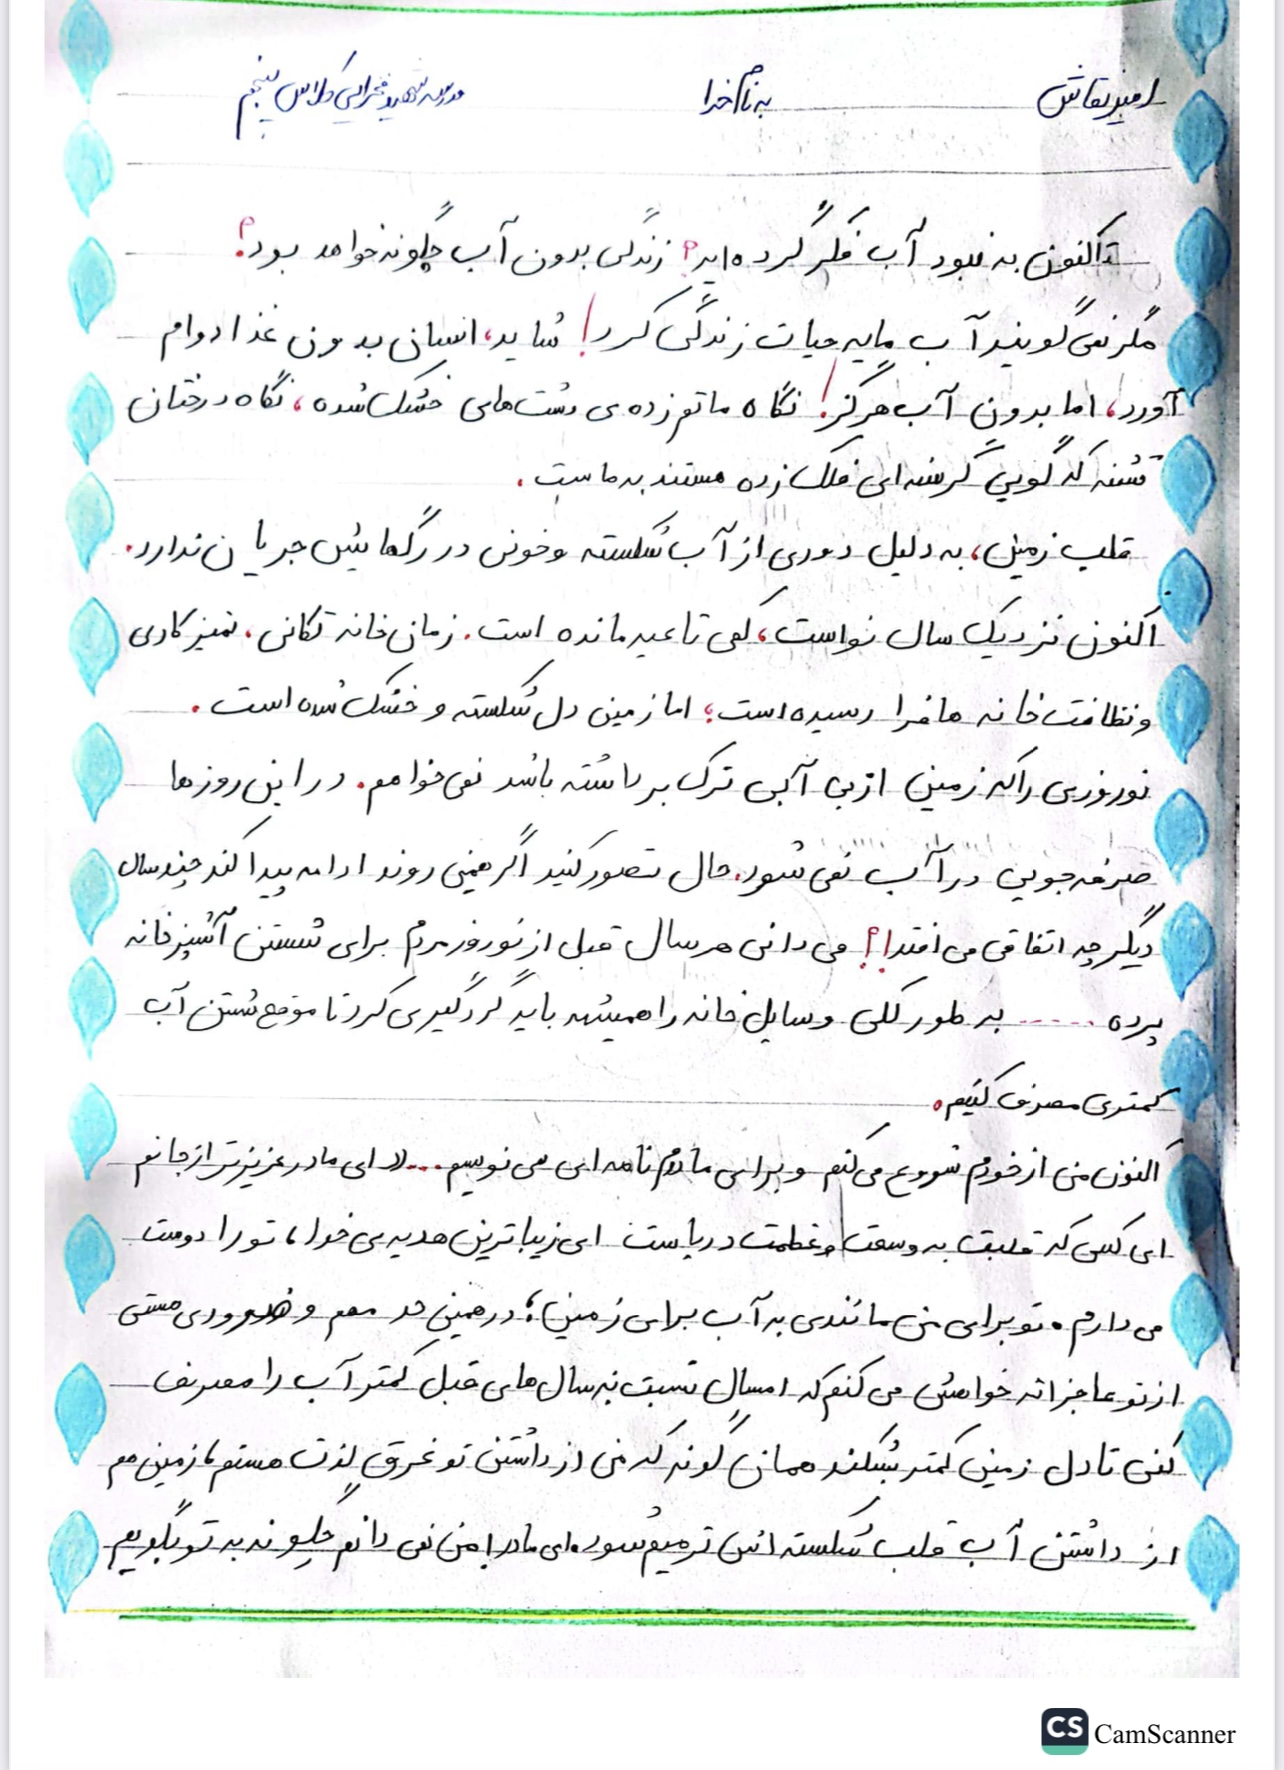 امیر نقاش به نام خدا مدرسه شهید کلاس پنجم
تاکنون به نبود آب فکر کرده اید؟ زندگی بدون آب چگونه خواهد بود؟
مگر نمی گویند آب مایه حیات زندگی کرد! شاید، انسان بدون غذا دوام
آورد، اما بدون آب هرگز! نگاه ماتم زده ی دشت های خشک شده، نگاه درختان
تشنه که گویی گرسنه ای فلک زده هستند به ماست.
قلب زمین، به دلیل دوری از آب شکسته و خونی در رگهایش جریان ندارد.
اکنون نزدیک سال نو است، کمی تا عید مانده است. زمان خانه تکانی، تمیز کاری
و نظافت خانه ها فرا رسیده است؛ اما زمین دل شکسته و خشک شده است.
نوروزی را که زمین از بی آبی ترک برداشته باشد نمی خواهم. در این روزها
صرفه جویی در آب نمی شود. حال تصور کنید اگر همین روند ادامه پیدا کند چند سال
دیگر چه اتفاقی می افتد!؟ می دانی هر سال قبل از نوروز مردم برای شستن آشپزخانه
پرده ..... به طور کلی وسایل خانه را همیشه باید گردگیری کرد تا موقع شستن آب
کمتری مصرف کنیم.
اکنون من از خودم شروع می کنم و برای مادرم نامه ای می نویسم... «ای مادر عزیزتر از جانم
ای کسی که قلبت به وسعت و عظمت دریاست ای زیباترین هدیه ی خدا، تو را دوست
می دارم. تو برای من مانندی به آب برای زمین؛ در همین حد مهم و ضروری هستی
از تو عاجزانه خواهش می کنم که امسال نسبت به سال های قبل کمتر آب را مصرف
کنی تا دل زمین کمتر بشکند همان گونه که من از داشتن تو غرق لذت هستم، زمین هم
از داشتن آب قلب شکسته اش ترمیم شود. ای مادر! من نمی دانم چگونه به تو بگویم
CS CamScanner